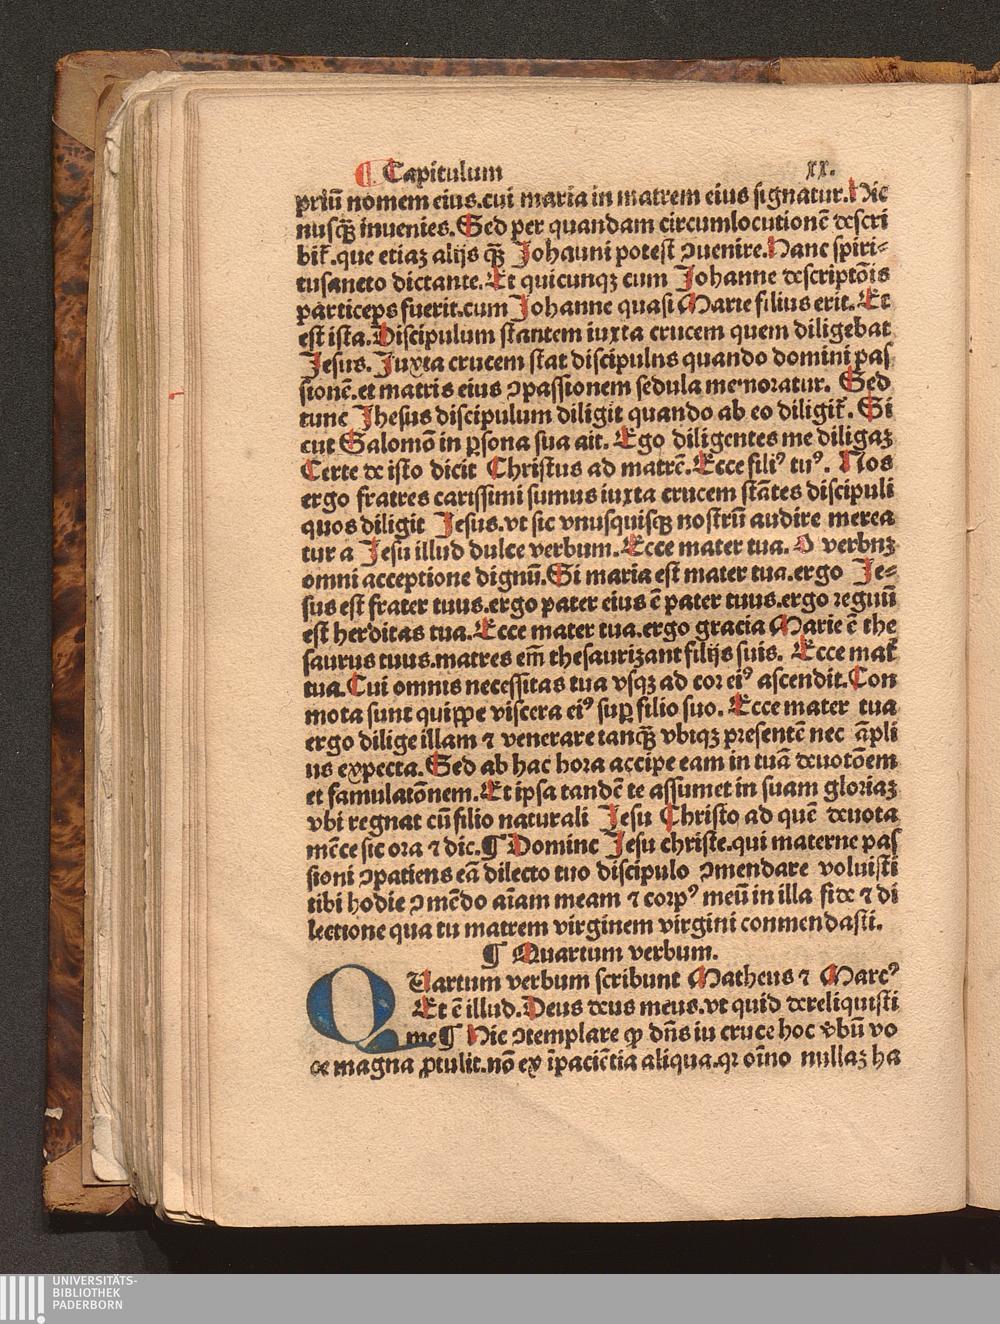 ¶ Capitulum xx.
priū nomem eius.cui maria in matrem eius signatur.Hic
nusqꝫ inuenies.Sed per quandam circumlocutionē descri
bit̄.que etiaꝫ alijs qꝫ̄ Johanni potest ꝯuenire.Hanc spiri-
tusancto dictante.Et quicunqꝫ cum Johanne descriptōis
particeps fuerit.cum Johanne quasi Marie filius erit. Et
est ista.Discipulum stantem iuxta crucem quem diligebat
Jesus. Juxta crucem stat discipulns quando domini pas
sionē.et matris eius ꝯpassionem sedula memoratur. Sed
tunc Jhesus discipulum diligit quando ab eo diligit̄. Si
cut Salomō in ꝑsona sua ait. Ego diligentes me diligaꝫ
Certe de isto dicit Christus ad matrē.Ecce filiꝰ tuꝰ. Nos
ergo fratres carissimi sumus iuxta crucem stātes discipuli
quos diligit Jesus.vt sic vnusquisqꝫ nostrū audire merea
tur a Jesu illud dulce verbum. Ecce mater tua. O verbnꝫ
omni acceptione dignū.Si maria est mater tua.ergo Je-
sus est frater tuus.ergo pater eius ē pater tuus.ergo regnū
est herditas tua.Ecce mater tua.ergo gracia Marie ē the
saurus tuus.matres em̄ thesaurizant filijs suis. Ecce mat̄
tua.Cui omnis necessitas tua vsqꝫ ad cor eiꝰ ascendit.Con
mota sunt quippe viscera eiꝰ suꝑ filio suo. Ecce mater tua
ergo dilige illam ⁊ venerare tanqꝫ̄ vbiqꝫ presentē nec āpli
us expecta.Sed ab hac hora accipe eam in tuā deuotōem
et famulatōnem.Et ipsa tandē te assumet in suam gloriaꝫ
vbi regnat cū filio naturali Jesu Christo ad quē deuota
mēce sic ora ⁊ dic.¶ Domine Jesu christe.qui materne pas
sioni ꝯpatiens eā dilecto tuo discipulo ꝯmendare voluisti
tibi hodie ꝯmēdo aīam meam ⁊ corpꝰ meū in illa fide ⁊ di
lectione qua tu matrem virginem virgini conmendasti.
¶ Quartum verbum.
QUartum verbum scribunt Matheus ⁊ Marcꝰ
Et ē illud.Deus deus meus.vt quid dereliquisti
me¶ Hic ꝯtemplare ꝙ dn̄s iu cruce hoc v̄bū vo
ce magna ꝓtulit.nō ex īpaciētia aliqua.qꝛ oīno nullaꝫ ha
UNIVERSITÄTS-
BIBLIOTHEK
PADERBORN